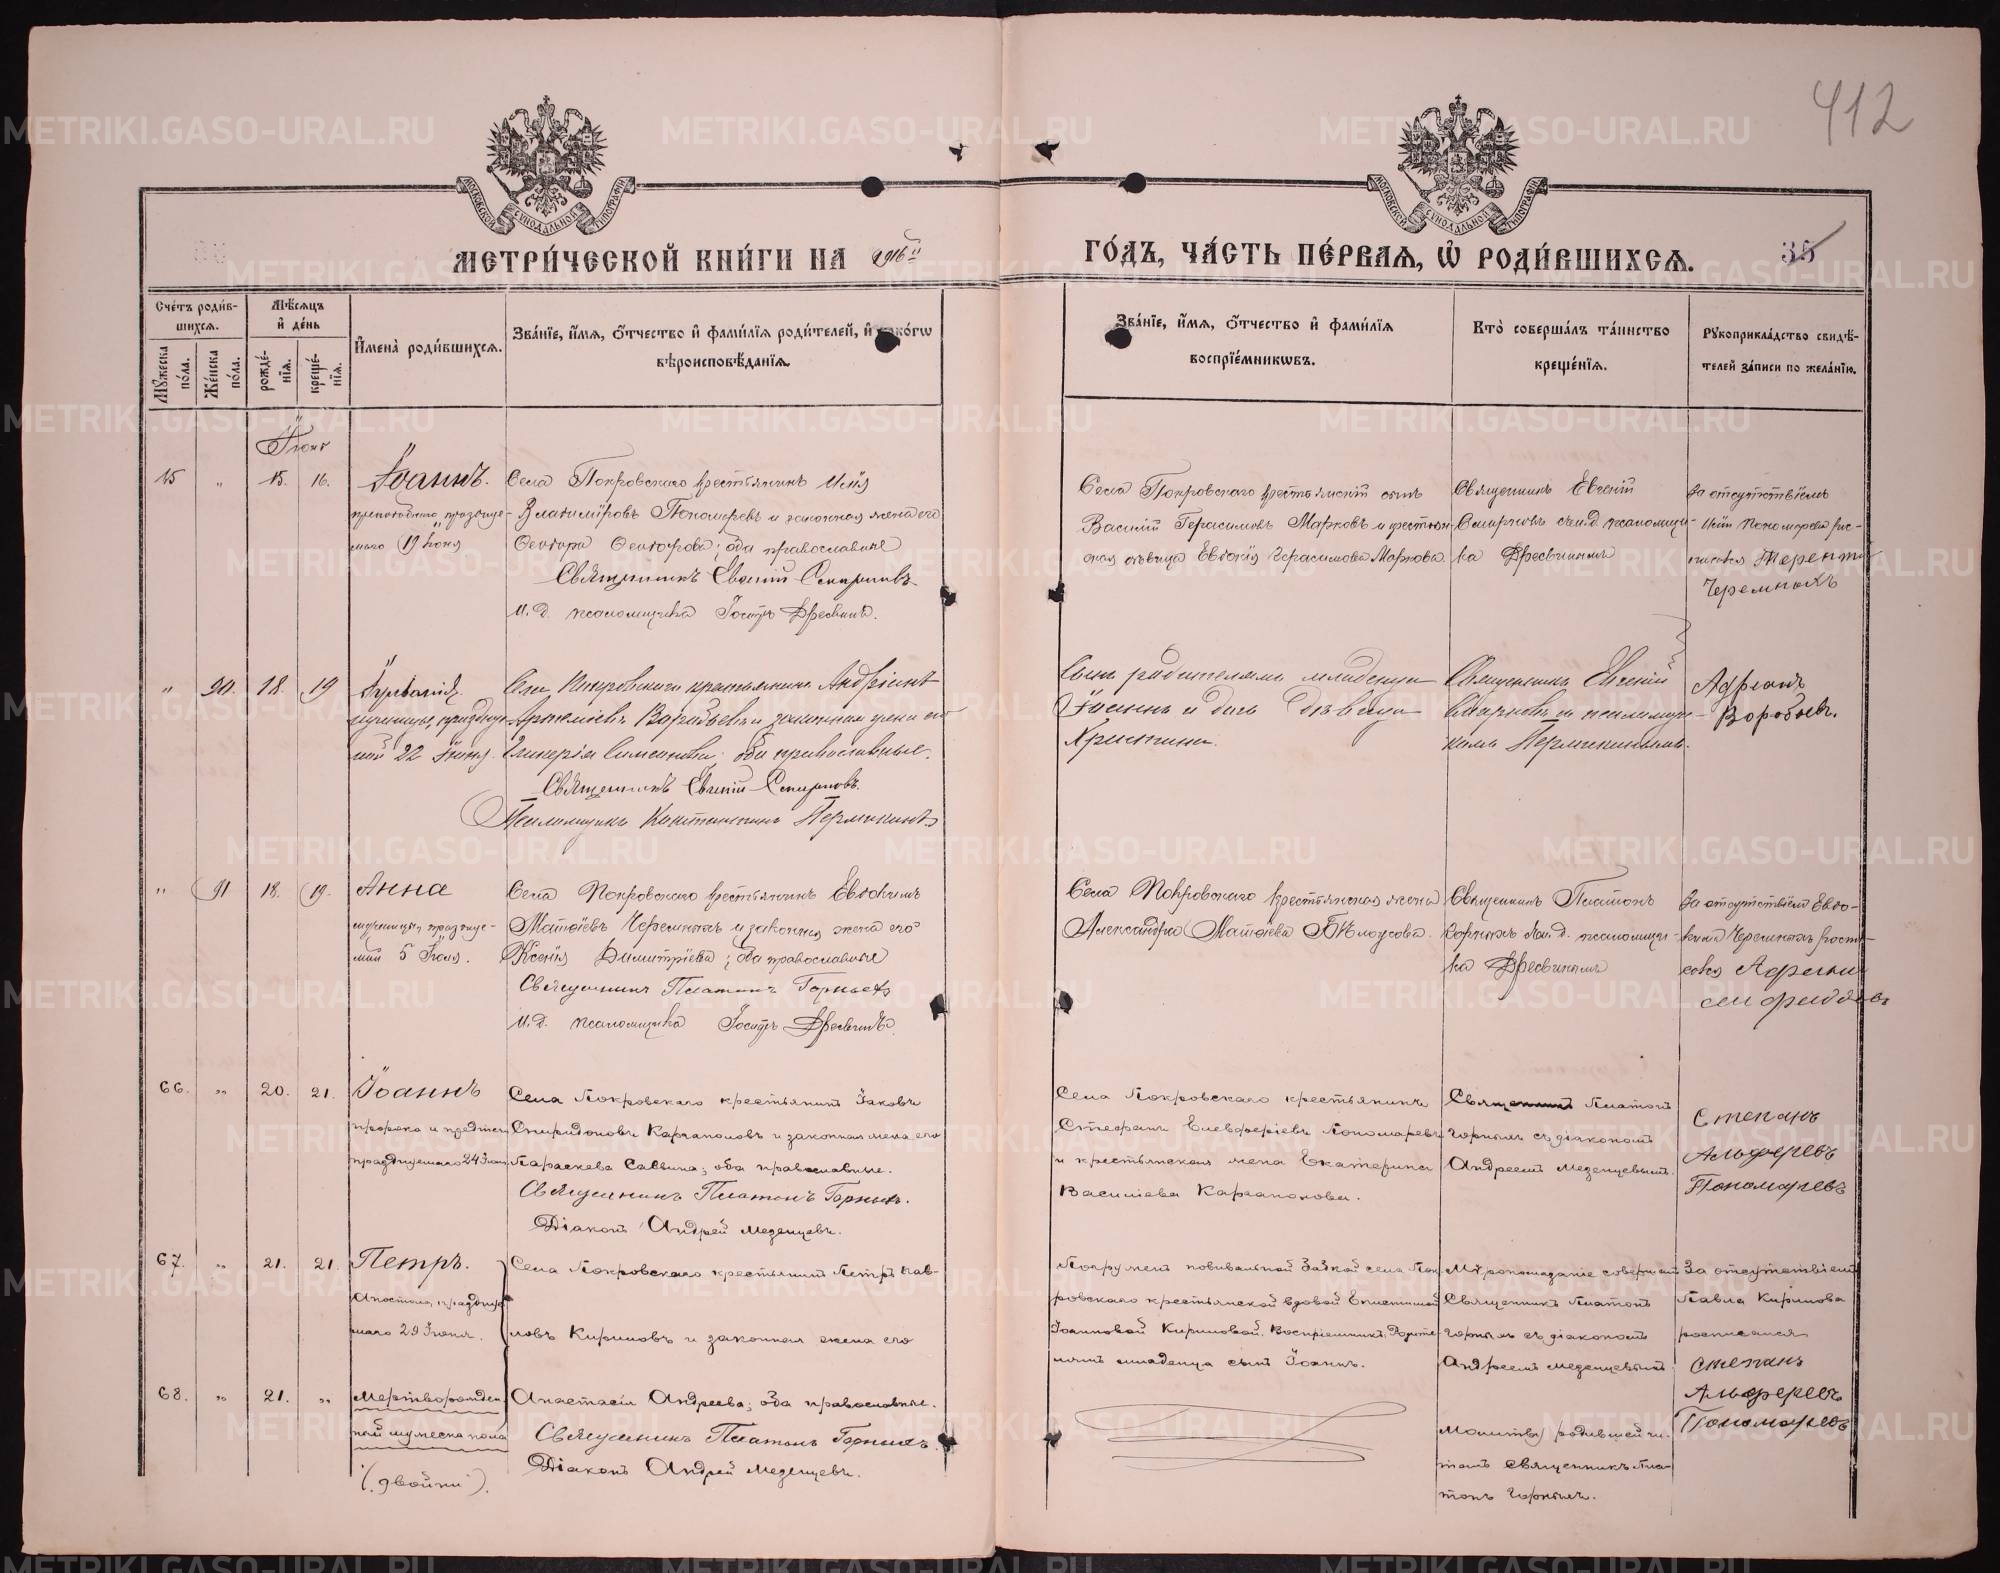 412
МЕТРИ́ЧЕСКОЙ КНИ́ГИ НА 1916 й
ГО́ДЪ, ЧА́СТЬ ПЕ́РВАѦ, Ѡ҆ РОДИ́ВШИХСѦ. 35
Сче́тъ роди́в-
шихсѧ.
Мѣ́сѧцъ
и҆ де́нь
Мꙋ́жеска по́ла.
Же́нска по́ла.
рожде́-нїѧ.
креще́-нїѧ.
И҆мена̀ роди́вшихсѧ.
Зва́нїе, и҆́мѧ, ѻ҆́тчество и҆ фами́лїѧ роди́телей, и҆ како́гѡ
вѣроисповѣ́данїѧ.
Зва́нїе, и҆́мѧ, ѻ҆́тчество и҆ фами́лїѧ
воспрїе́мникѡвъ.
Кто̀ соверша́лъ та́инство
креще́нїѧ.
Рꙋкоприкла́дство свидѣ́-
телей за́писи по жела́нїю.
Іюнь
65 „ 15. 16. Іоаннъ.
преподобнаго празднуе-
маго 19 Іюня
Села Покровскаго крестьянинъ Илія
Владиміровъ Пономаревъ и законная жена его
Феодора Феодорова; оба православные
Священникъ Евгеній Смирновъ
И. д. псаломщика Іосифъ Дресвинъ.
Села Покровскаго крестьянскій сынъ
Василій Герасимовъ Марковъ и крестьян-
ская дѣвица Евдокія Герасимова Маркова
Священникъ Евгеній
Смирновъ съ и. д. псаломщи-
ка Дресвинымъ
За отсутствіемъ
Иліи Пономарева рос-
писался Терентий
Черемныхъ
„ 90. 18. 19
мученицы, праздну-
мой 22 Іюня.
Села Покровскаго крестьянинъ Андріанъ
Артеміевъ Воробьевъ и законная жена его
Гликерія Симеонова; оба православные.
Священникъ Евгеній Смирновъ.
Псаломщикъ Константинъ Пермикинъ
Сынъ родителямъ младенца
Іоаннъ и дочь дѣвица
Христина.
Священникъ Евгеній
Смирновъ съ псаломщи-
комъ Пермикинымъ.
Адреанъ
Воробьевъ.
„ 91 18. 19. Анна
мученицы, празднуе-
мой 5 Іюля.
Села Покровскаго крестьянинъ Евдокимъ
Матѳіевъ Черемныхъ и законная жена его
Ксенія Димитріева; оба православные
Священникъ Платонъ Горныхъ
И. д. псаломщика Іосифъ Дресвинъ.
Села Покровскаго крестьянская жена
Александра Матѳіева Бѣлоусова.
Священникъ Платонъ
Горныхъ съ и. д. псаломщи-
ка Дресвинымъ
За отсутствіемъ Евдо-
кима Черемныхъ роспи-
сался
66. „ 20. 21. Іоаннъ
пророка и предтечи
празднуемаго 24 Іюня
Села Покровскаго крестьянинъ Іаковъ
Спиридоновъ Каргаполовъ и законная жена его
Параскева Саввина; оба православные.
Священникъ Платонъ Горныхъ.
Діаконъ Андрей Меденцевъ.
Села Покровскаго крестьянинъ
Стефанъ Елевферіевъ Пономаревъ
и крестьянская жена Екатерина
Василіева Каргаполова.
Священникъ Платонъ
Горныхъ съ діакономъ
Андреемъ Меденцевымъ.
Степанъ
Альферевъ
Пономаревъ
67. „ 21. 21. Петръ.
Апостола, праздну-
маго 29 Іюня.
Села Покровскаго крестьянинъ Петръ Пав-
ловъ Кириловъ и законная жена его
Погруженъ повивальной бабкой села Пок-
ровскаго крестьянской вдовой Епистиміей
Іоанновой Кириловой. Воспріемникъ: Родите-
лямъ младенца сынъ Іоаннъ.
Мѵропомазаніе совершилъ
Священникъ Платонъ
Горныхъ съ діакономъ
Андреемъ Меденцевымъ.
За отсутствіемъ
Павла Кирилова
росписался
Степанъ
Альферевъ
Пономаревъ
68. „ 21. „ Мертворожден-
ный мужеска пола
(двойни).
Анастасія Андреева; оба православные.
Священникъ Платонъ Горныхъ.
Діаконъ Андрей Меденцевъ.
Молитву родившей чи-
талъ священникъ Пла-
тонъ Горныхъ.
METRIKI.GASO-URAL.RU